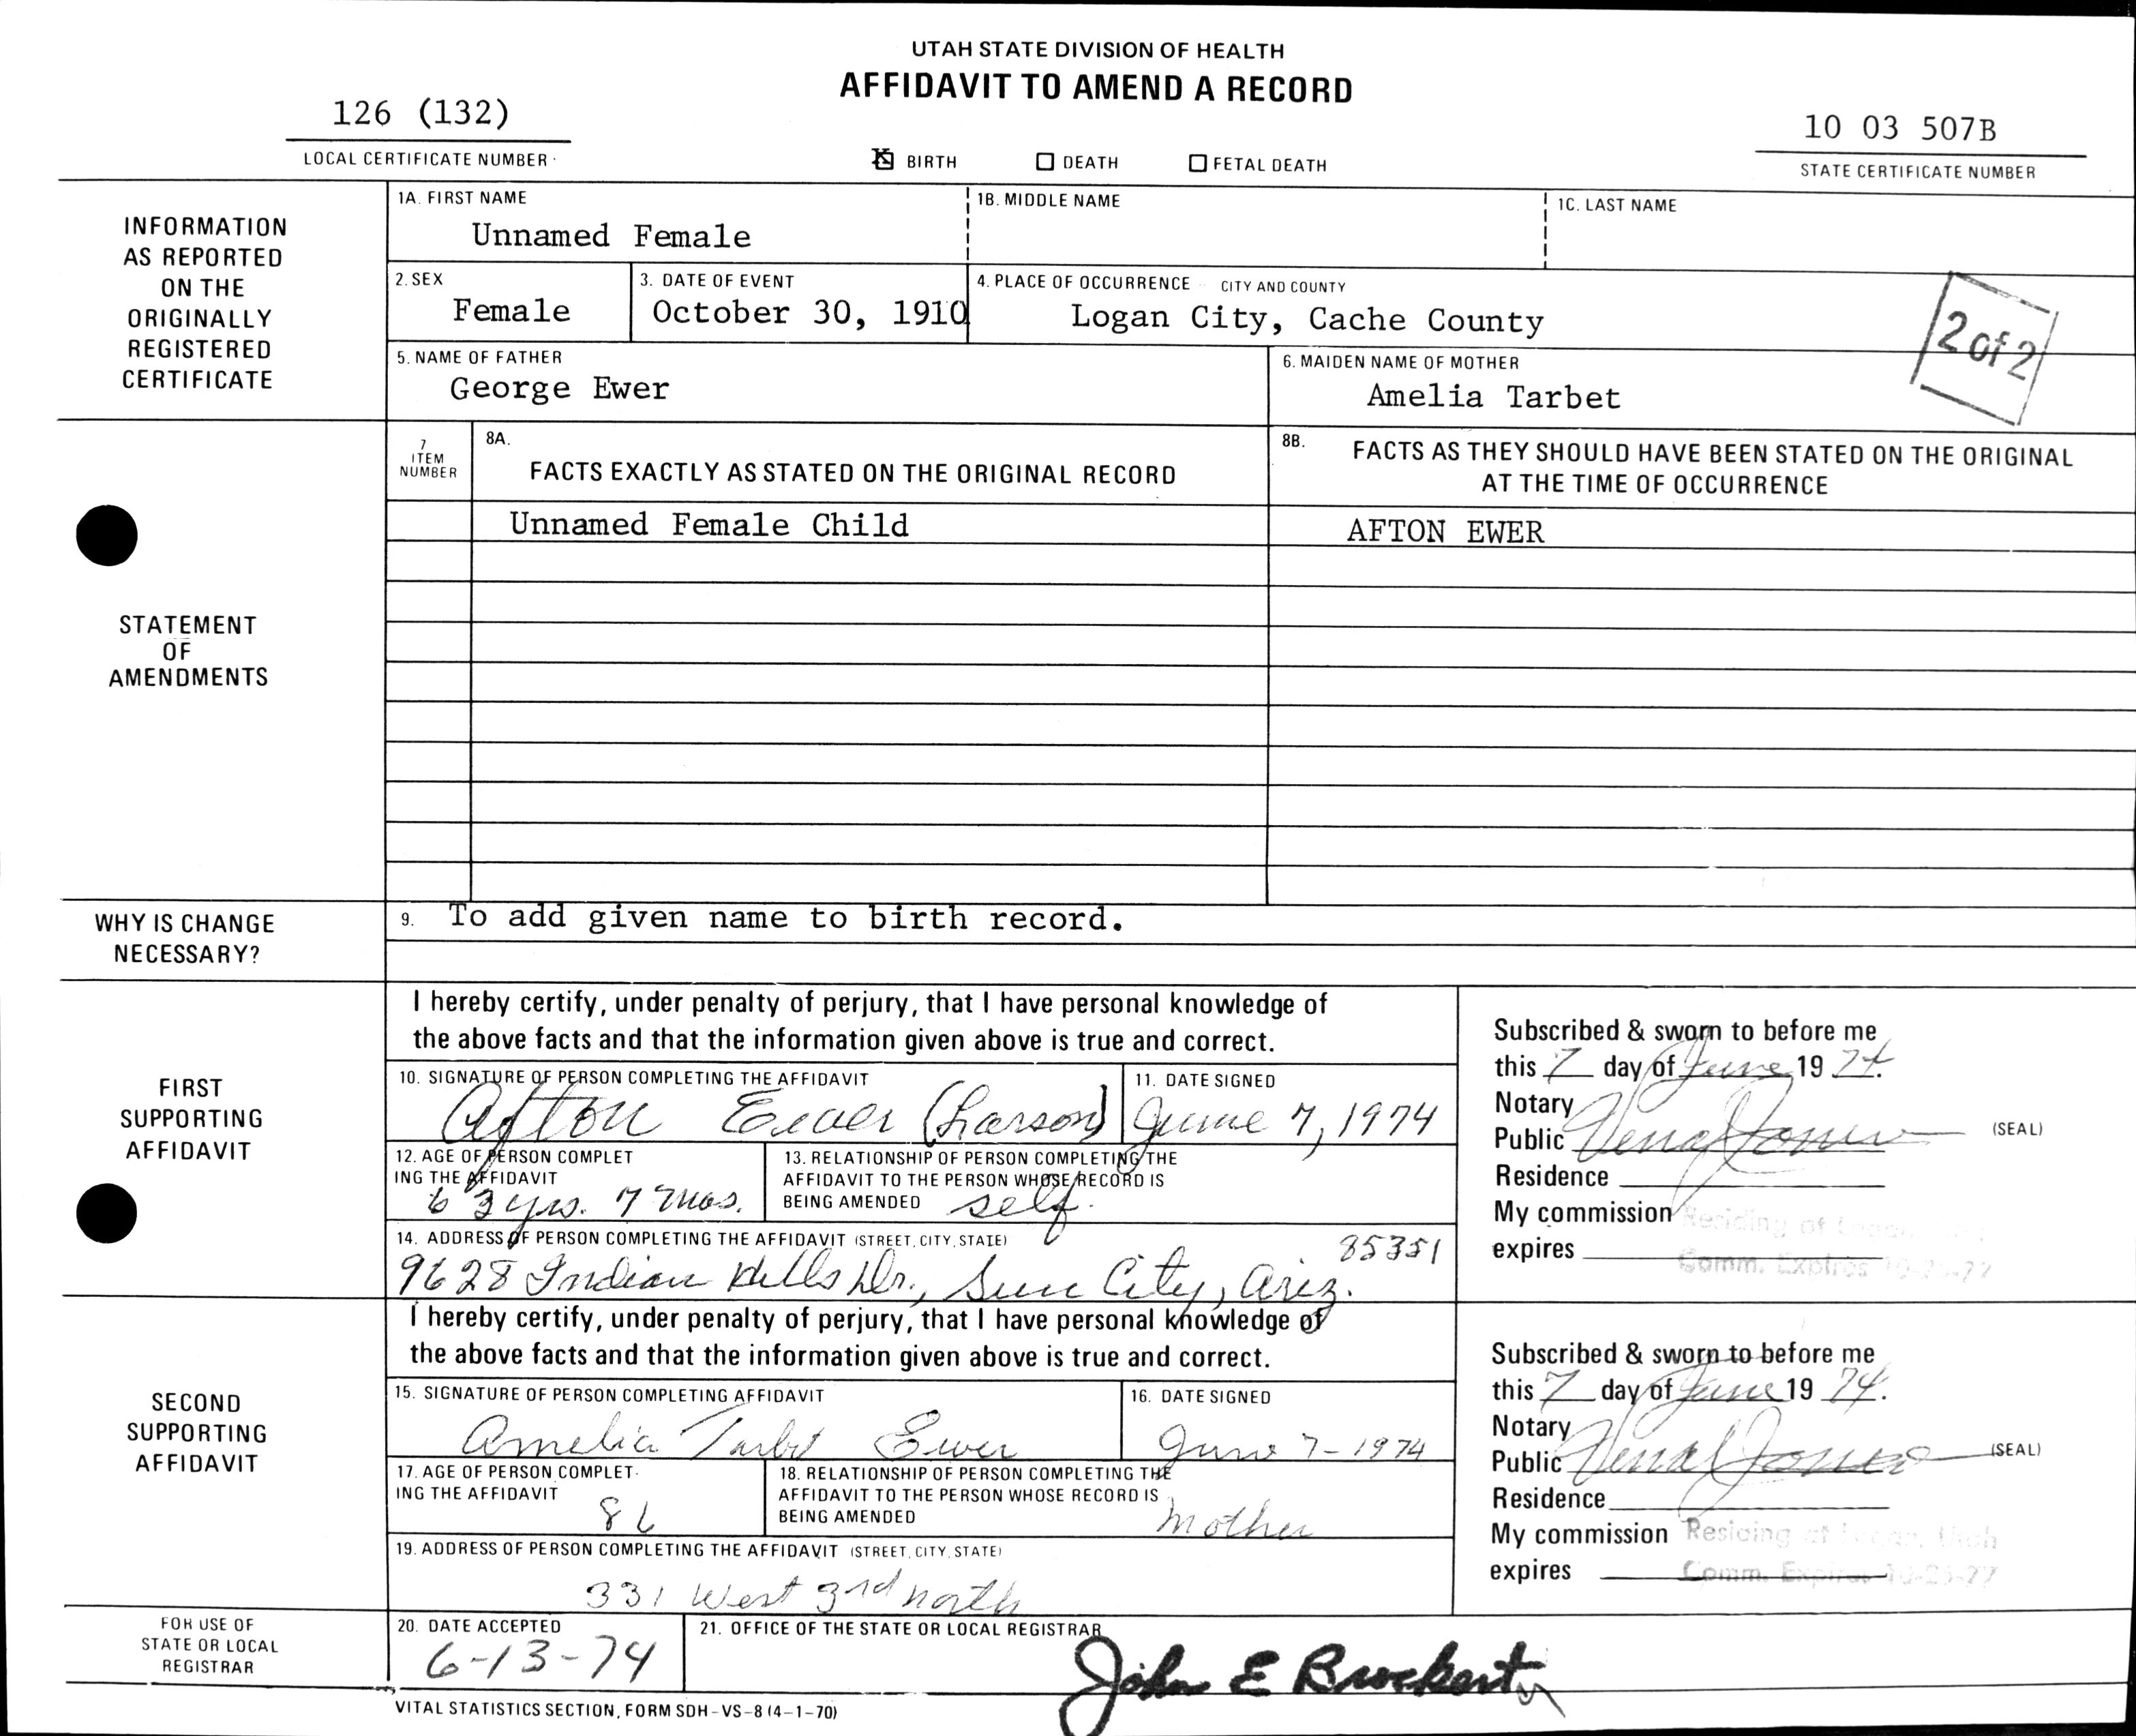 UTAH STATE DIVISION OF HEALTH
AFFIDAVIT TO AMEND A RECORD
126 (132)
LOCAL CERTIFICATE NUMBER
BIRTH DEATH FETAL DEATH
10 03 507B
STATE CERTIFICATE NUMBER
INFORMATION
AS REPORTED
ON THE
ORIGINALLY
REGISTERED
CERTIFICATE
1A. FIRST NAME 1B. MIDDLE NAME 1C. LAST NAME
Unnamed Female
2. SEX 3. DATE OF EVENT 4. PLACE OF OCCURRENCE CITY AND COUNTY
Female October 30, 1910 Logan City, Cache County
2 of 2
5. NAME OF FATHER 6. MAIDEN NAME OF MOTHER
George Ewer Amelia Tarbet
STATEMENT
OF
AMENDMENTS
7
ITEM
NUMBER
8A.
FACTS EXACTLY AS STATED ON THE ORIGINAL RECORD
8B. FACTS AS THEY SHOULD HAVE BEEN STATED ON THE ORIGINAL
AT THE TIME OF OCCURRENCE
Unnamed Female Child AFTON EWER
WHY IS CHANGE
NECESSARY?
9. To add given name to birth record.
FIRST
SUPPORTING
AFFIDAVIT
I hereby certify, under penalty of perjury, that I have personal knowledge of
the above facts and that the information given above is true and correct.
10. SIGNATURE OF PERSON COMPLETING THE AFFIDAVIT 11. DATE SIGNED
Afton Ewer (Larson) June 7, 1974
12. AGE OF PERSON COMPLET
ING THE AFFIDAVIT
63 yrs. 7 mos.
13. RELATIONSHIP OF PERSON COMPLETING THE
AFFIDAVIT TO THE PERSON WHOSE RECORD IS
BEING AMENDED self.
14. ADDRESS OF PERSON COMPLETING THE AFFIDAVIT (STREET, CITY, STATE)
85351
9628 Indian Hills Dr., Sun City, Ariz.
Subscribed & sworn to before me
this 7 day of June 19 74.
Notary
Public (SEAL)
Residence
My commission Residing at Logan,
expires Comm. Expires 10-23-77
SECOND
SUPPORTING
AFFIDAVIT
I hereby certify, under penalty of perjury, that I have personal knowledge of
the above facts and that the information given above is true and correct.
15. SIGNATURE OF PERSON COMPLETING AFFIDAVIT 16. DATE SIGNED
Amelia Tarbet Ewer June 7-1974
17. AGE OF PERSON COMPLET-
ING THE AFFIDAVIT
86
18. RELATIONSHIP OF PERSON COMPLETING THE
AFFIDAVIT TO THE PERSON WHOSE RECORD IS
BEING AMENDED Mother
19. ADDRESS OF PERSON COMPLETING THE AFFIDAVIT (STREET, CITY, STATE)
331 West 3rd north
Subscribed & sworn to before me
this 7 day of June 19 74.
Notary
Public (SEAL)
Residence
My commission Residing at Logan, Utah
expires Comm. Expires 10-23-77
FOR USE OF
STATE OR LOCAL
REGISTRAR
20. DATE ACCEPTED
6-13-74
21. OFFICE OF THE STATE OR LOCAL REGISTRAR
John E Brockert
VITAL STATISTICS SECTION, FORM SDH-VS-8 (4-1-70)